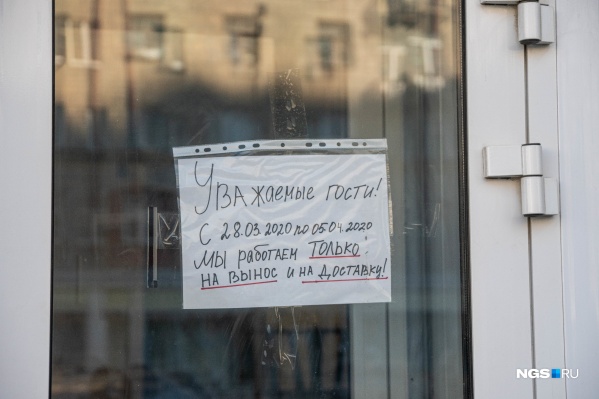 Уважаемые гости!
С 28.03.2020 по 05.04.2020
мы работаем ТОЛЬКО:
НА ВЫНОС и НА ДОСТАВКУ!
NGS.RU